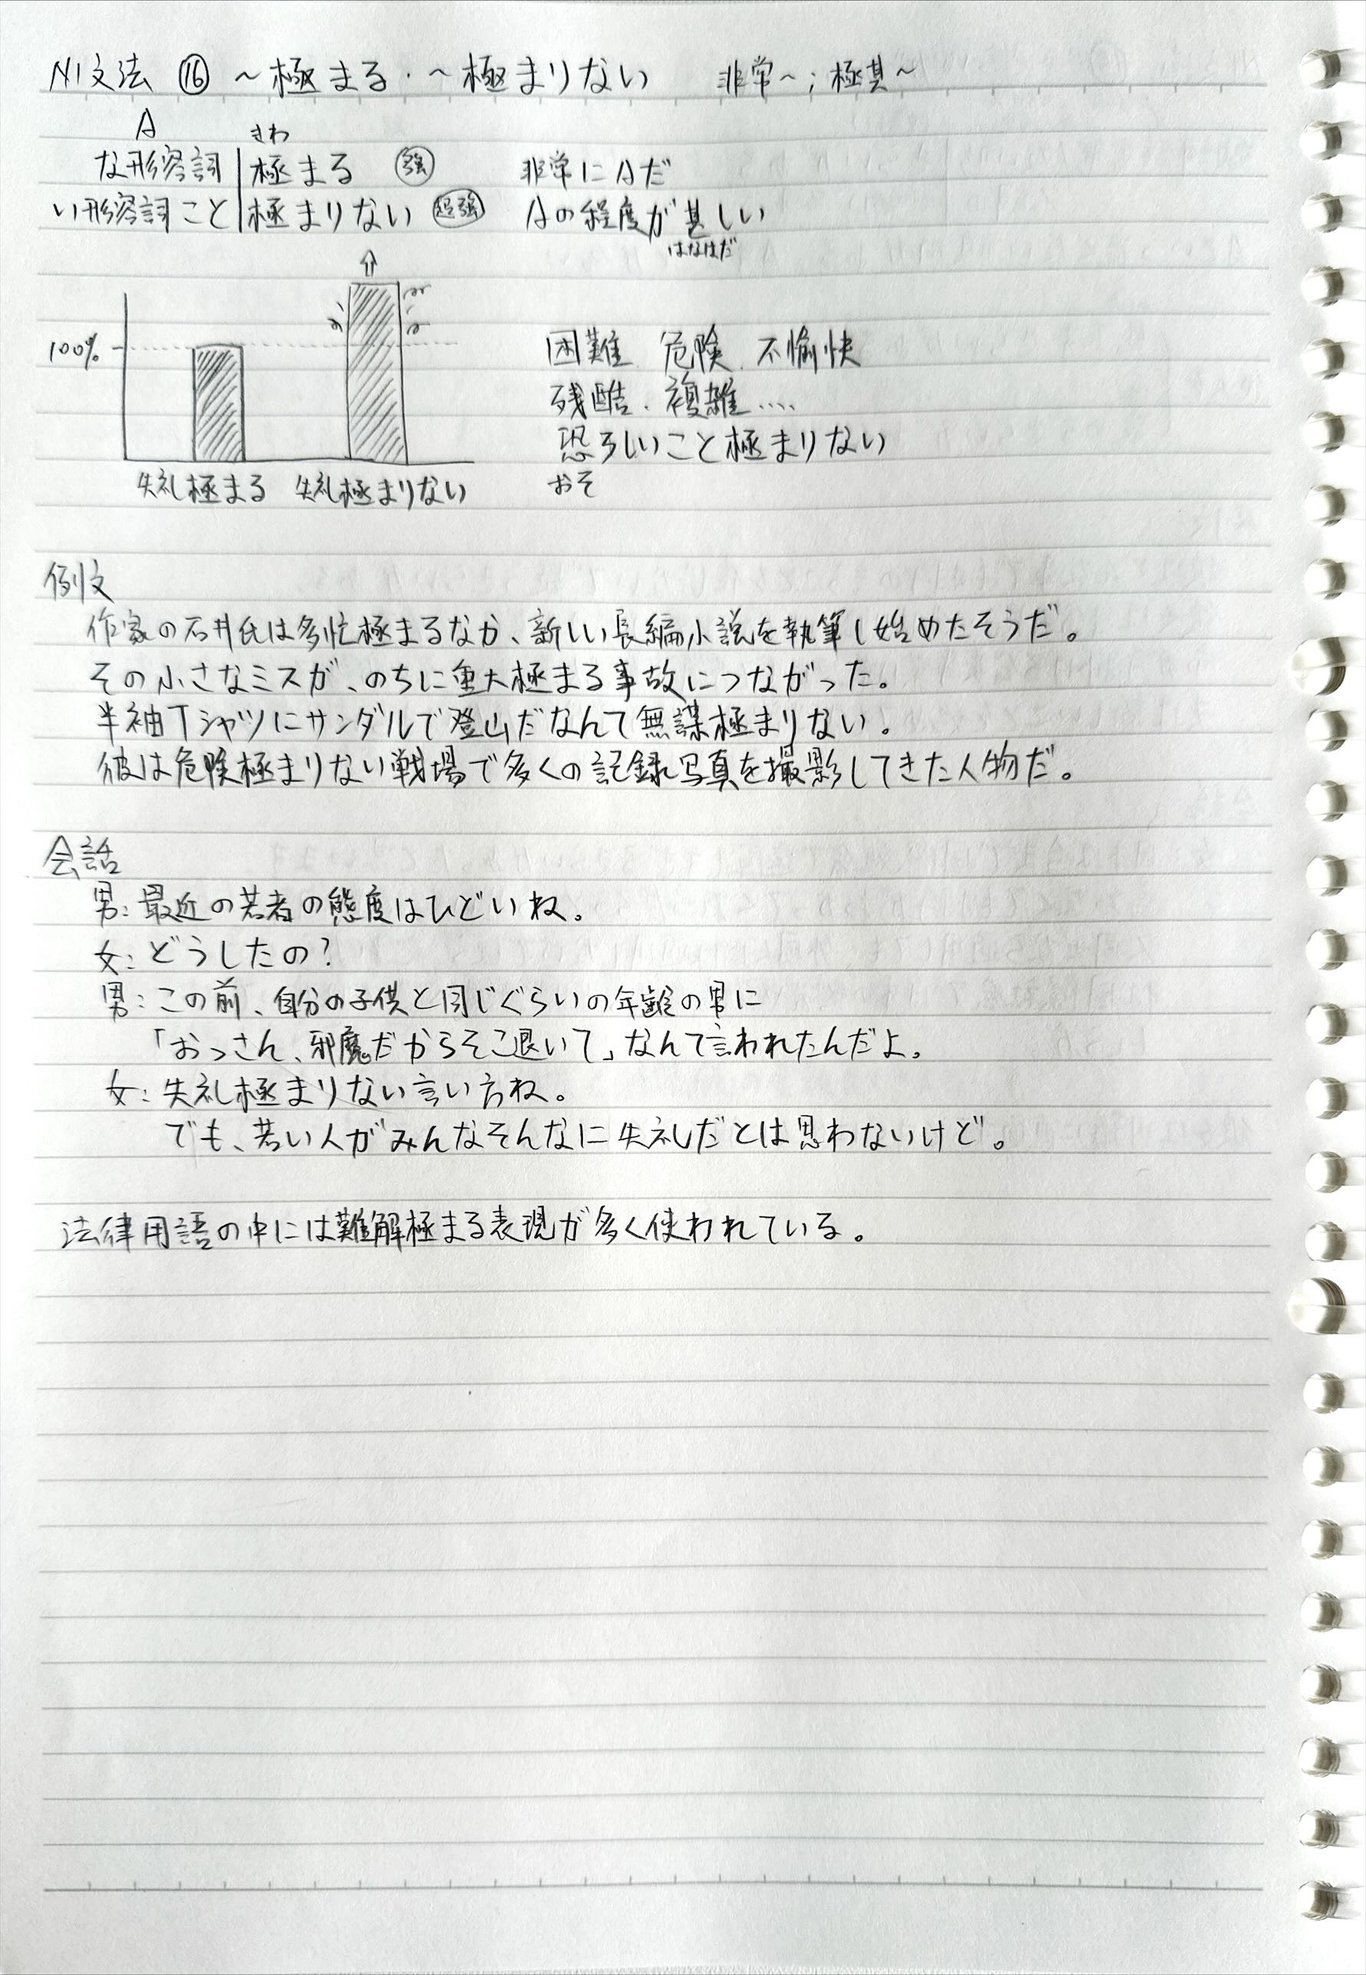 N1文法 ⑯ ～極まる・～極まりない 非常～；極其～
A
な形容詞 極まる 強 非常にAだ
きわ
い形容詞こと 極まりない 超強 Aの程度が甚しい
はなはだ
100%
失礼極まる 失礼極まりない
困難、危険、不愉快
残酷、複雑....
恐ろしいこと極まりない
おそ
例文
作家の石井氏は多忙極まるなか、新しい長編小説を執筆し始めたそうだ。
その小さなミスが、のちに重大極まる事故につながった。
半袖Tシャツにサンダルで登山だなんて無謀極まりない。
彼は危険極まりない戦場で多くの記録写真を撮影してきた人物だ。
会話
男：最近の若者の態度はひどいね。
女：どうしたの？
男：この前、自分の子供と同じぐらいの年齢の男に
「おっさん、邪魔だからそこ退いて」なんて言われたんだよ。
女：失礼極まりない言い方ね。
でも、若い人がみんなそんなに失礼だとは思わないけど。
法律用語の中には難解極まる表現が多く使われている。